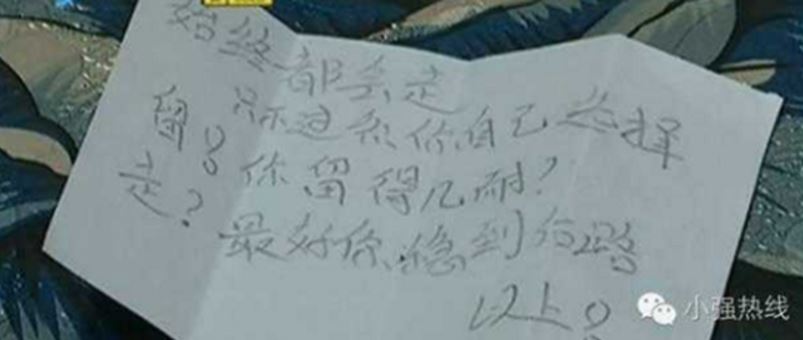 始终都会走
只不过系你自己选择
留？你留得几耐？
走？最好你稳到台阶
以上？
小强热线